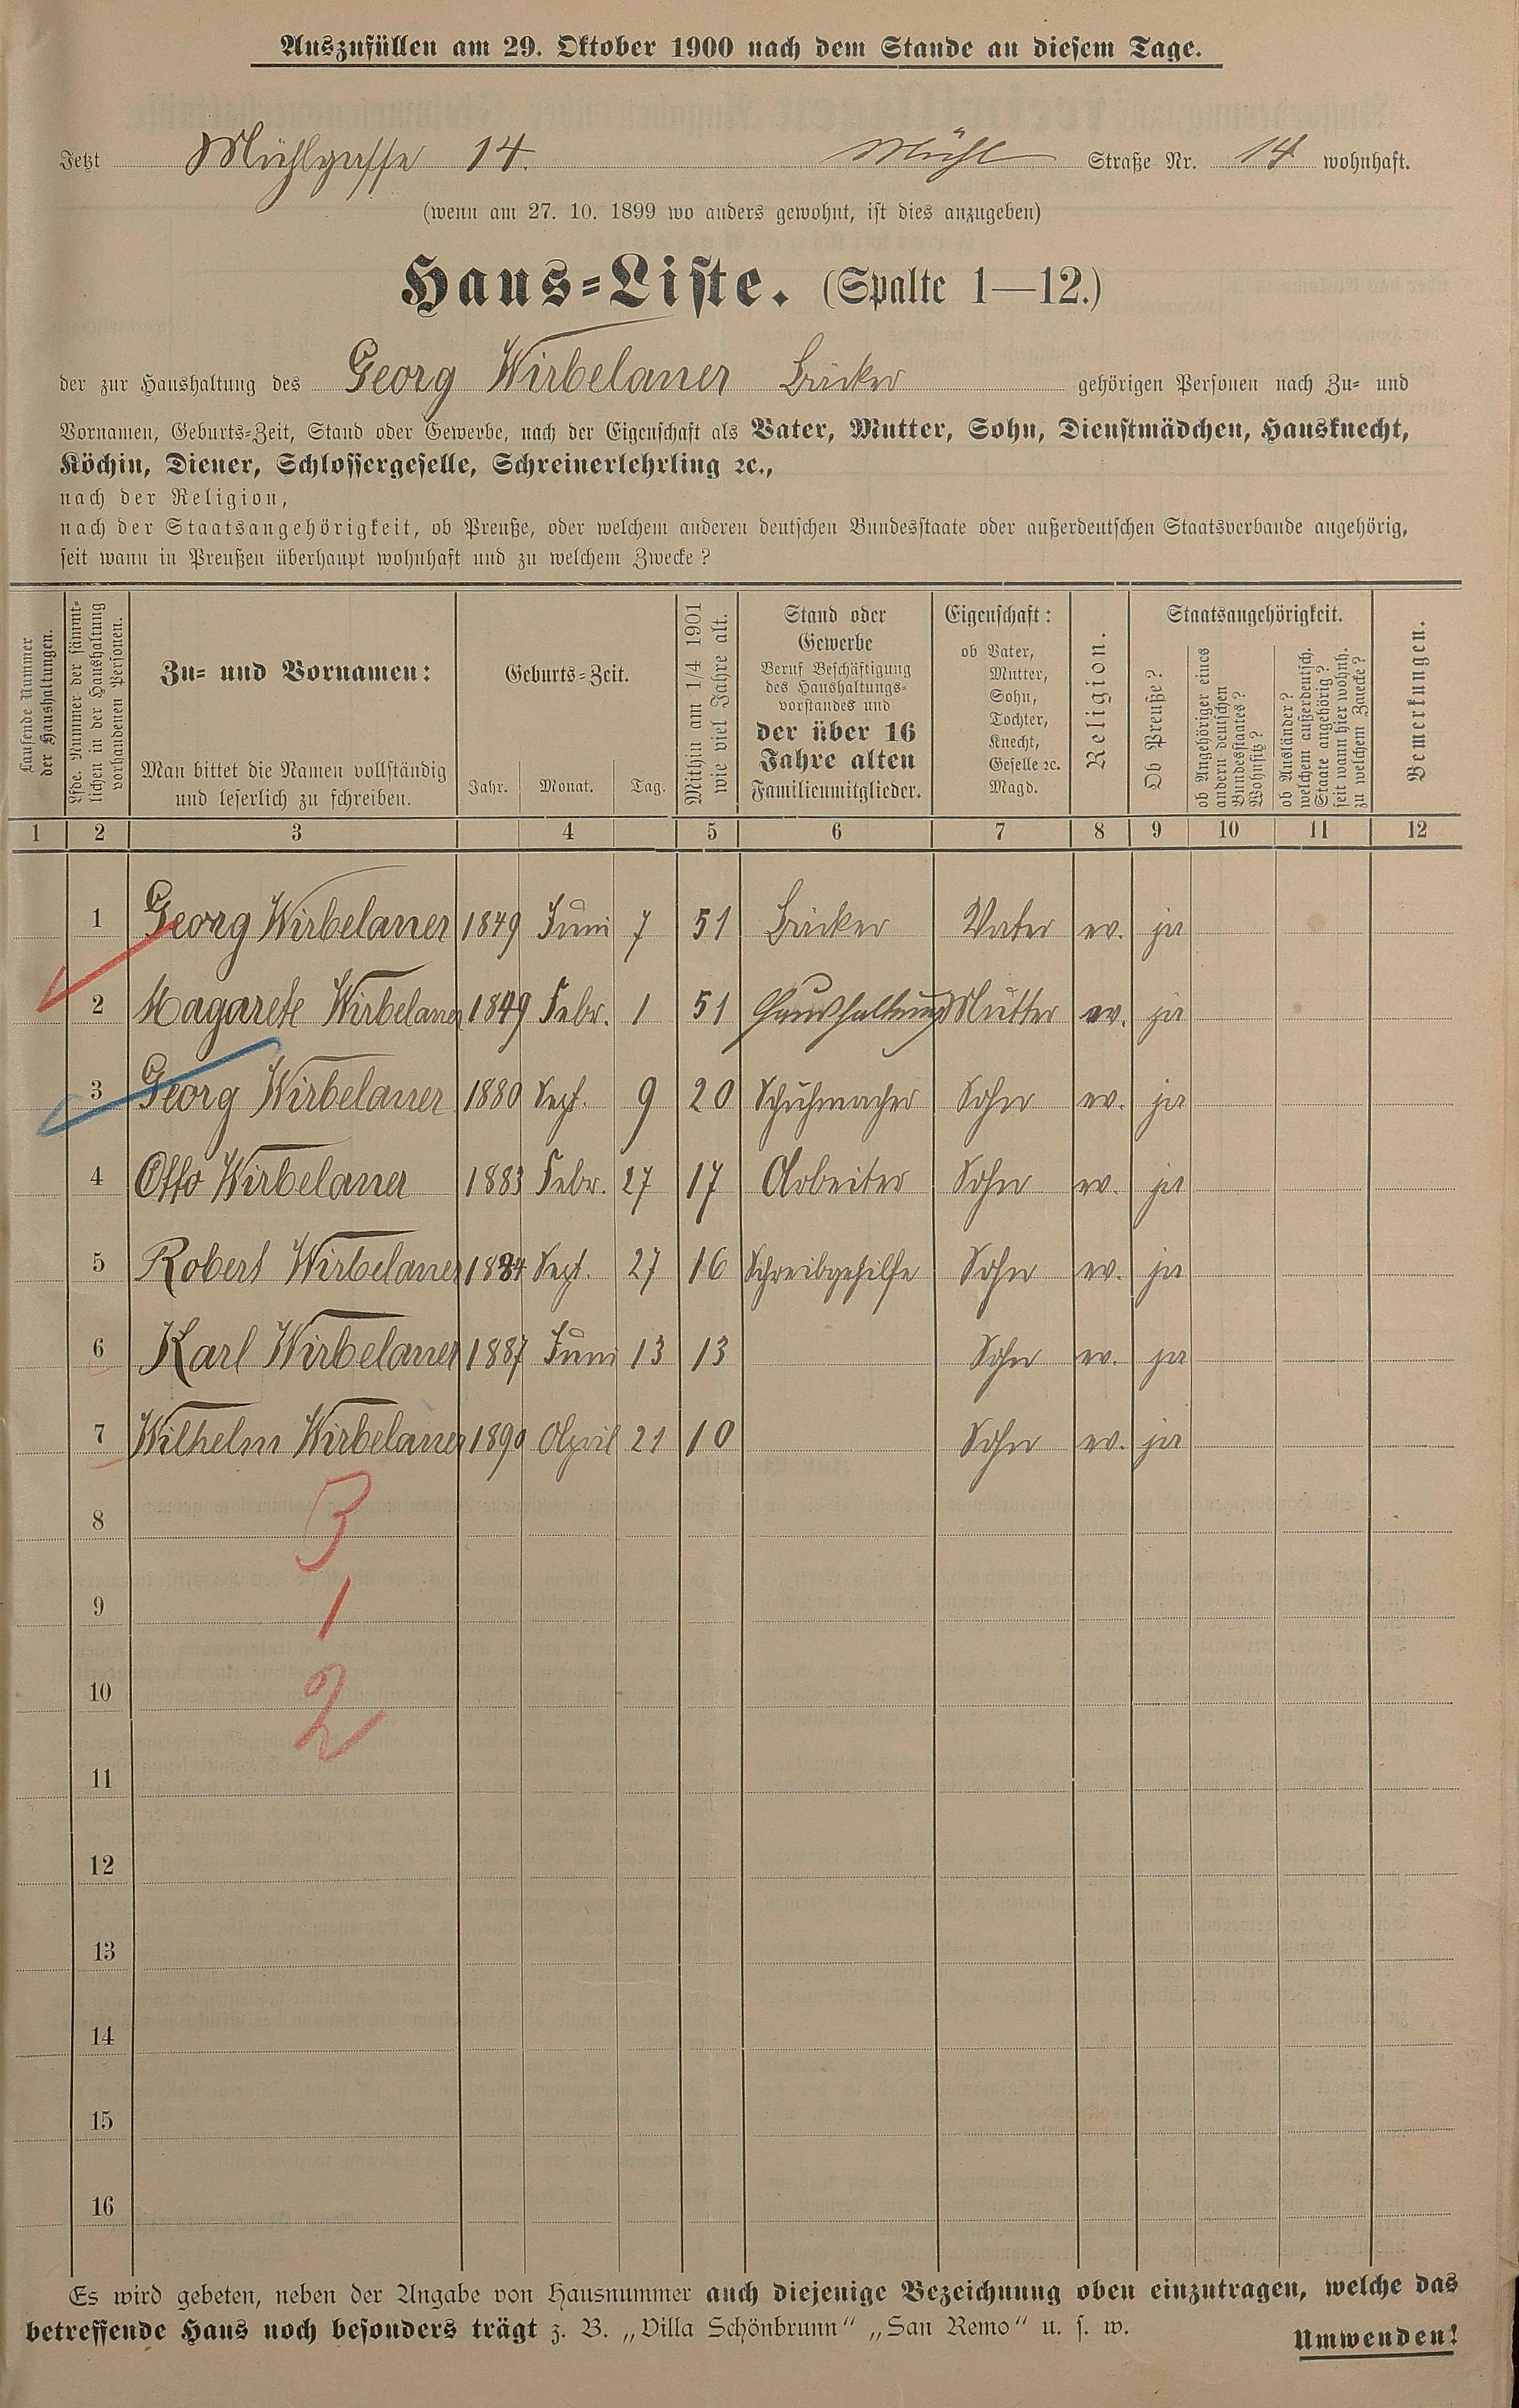 Auszufüllen am 29. Oktober 1900 nach dem Stande an diesem Tage.
Jetzt Mühlgasse 14. Mühl Straße Nr. 14 wohnhaft.
(wenn am 27. 10. 1899 wo anders gewohnt, ist dies anzugeben)
Haus=Liste. (Spalte 1—12.)
der zur Haushaltung des Georg Wirbelauer Bäcker gehörigen Personen nach Zu= und
Vornamen, Geburts=Zeit, Stand oder Gewerbe, nach der Eigenschaft als Vater, Mutter, Sohn, Dienstmädchen, Hausknecht,
Köchin, Diener, Schlossergeselle, Schreinerlehrling ꝛc.,
nach der Religion,
nach der Staatsangehörigkeit, ob Preuße, oder welchem anderen deutschen Bundesstaate oder außerdeutschen Staatsverbande angehörig,
seit wann in Preußen überhaupt wohnhaft und zu welchem Zwecke?
Laufende Nummer
der Haushaltungen.
Lfde. Nummer der sämmt=
lichen in der Haushaltung
vorhandenen Personen.
Zu= und Vornamen:
Man bittet die Namen vollständig
und leserlich zu schreiben.
Geburts=Zeit.
Jahr. Monat. Tag.
Mithin am 1/4 1901
wie viel Jahre alt.
Stand oder
Gewerbe
Beruf Beschäftigung
des Haushaltungs=
vorstandes und
der über 16
Jahre alten
Familienmitglieder.
Eigenschaft:
ob Vater,
Mutter,
Sohn,
Tochter,
Knecht,
Geselle ꝛc.
Magd.
Religion.
Staatsangehörigkeit.
Ob Preuße?
ob Angehöriger eines
andern deutschen
Bundesstaates?
Wohnsitz?
ob Ausländer?
welchem außerdeutsch.
Staate angehörig?
seit wann hier wohnh.
zu welchem Zwecke?
Bemerkungen.
1 2 3 4 5 6 7 8 9 10 11 12
1 Georg Wirbelauer 1849 Juni 7 51 Bäcker Vater ev. ja
2 Magarete Wirbelauer 1849 Febr. 1 51 Haushaltung Mutter ev. ja
3 Georg Wirbelauer 1880 Sept. 9 20 Schuhmacher Sohn ev. ja
4 Otto Wirbelauer 1883 Febr. 27 17 Arbeiter Sohn ev. ja
5 Robert Wirbelauer 1884 Sept. 27 16 Schreibgehilfe Sohn ev. ja
6 Karl Wirbelauer 1887 Juni 13 13 Sohn ev. ja
7 Wilhelm Wirbelauer 1890 April 21 10 Sohn ev. ja
8 3
9 1
10 2
11
12
13
14
15
16
Es wird gebeten, neben der Angabe von Hausnummer auch diejenige Bezeichnung oben einzutragen, welche das
betreffende Haus noch besonders trägt z. B. „Villa Schönbrunn“ „San Remo“ u. s. w.
Umwenden!